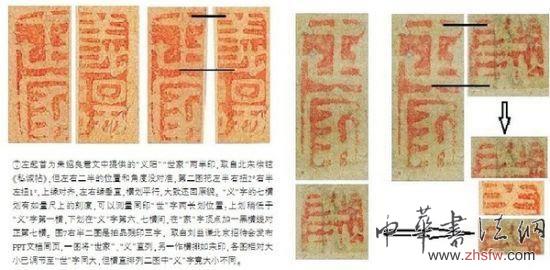 ①左起首为朱绍良君文中提供的“义阳”“世家”两半印，取自北宋徐铉
《私诚帖》，但左右二半的位置和角度没对准。第二图把左半右扭2°右半
左扭1°，上缘对齐，左右缘垂直，横划平行，大致还回原貌。“义”字的七横
划有如量尺上的刻度，可以测量同印“世”字两长划位置。上划稍低于
“义”字第一横，下划在“义”字第六、七横间，在“家”字顶点加一黑横线对
正第七横。图右半二图是拍品残印三字，取自刘益谦北京招待会发布
PPT文档同页，一图将“世家”、“义”直列，另一作横排如朱印，各图相对大
小已调节至“世”字同大，但横直排列二图中“义”字竟大小不同。
中華書法網
www.zhsfw.com